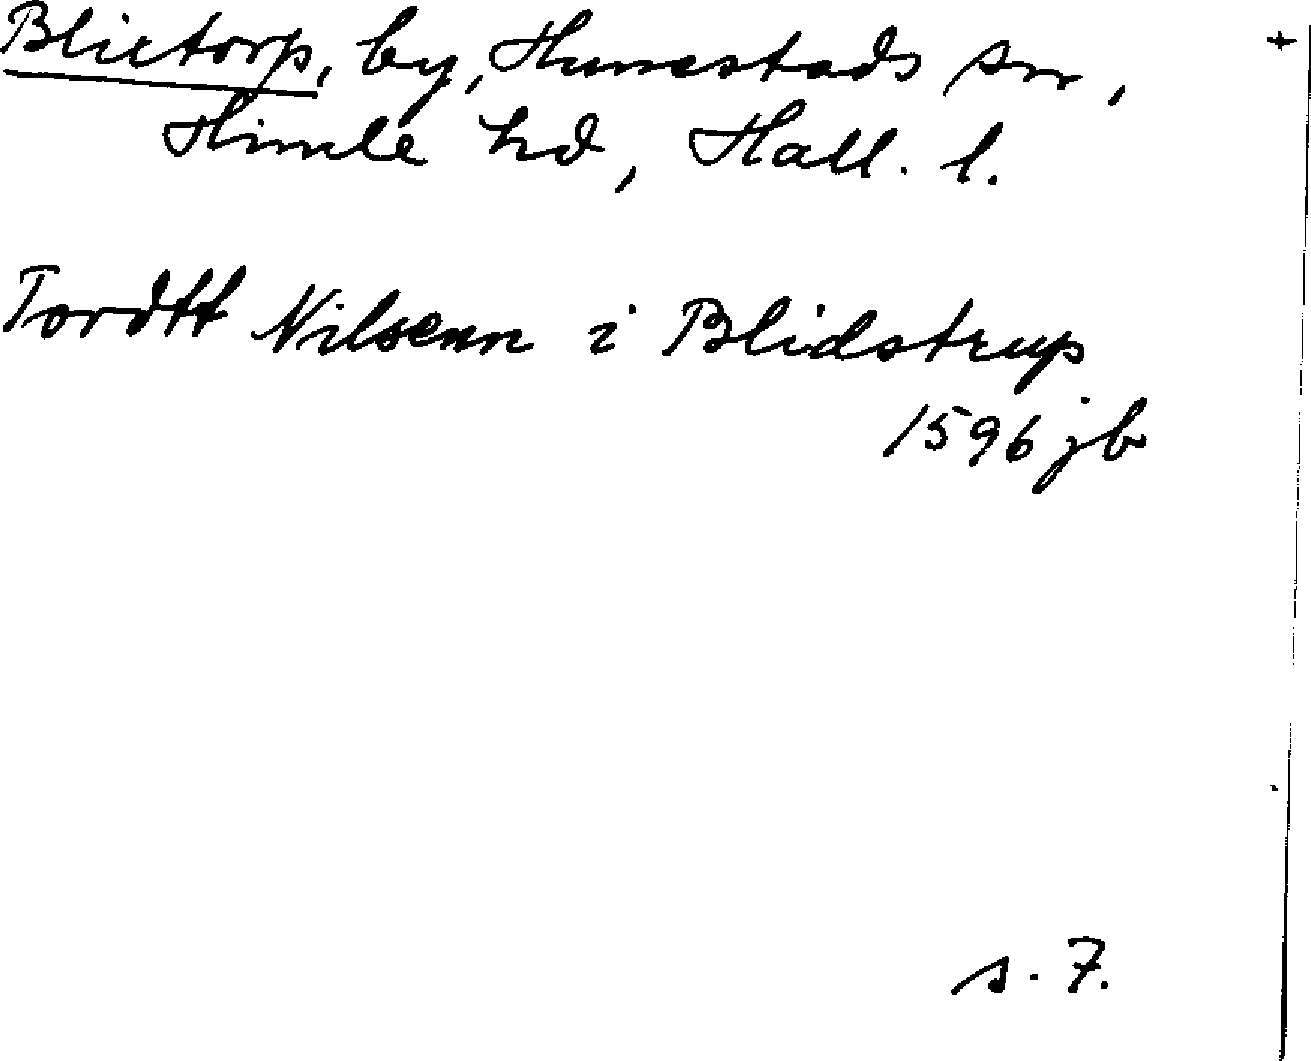 Blixtorp, by, Hunnestads sn,
Himle hd, Hall. l.
Tordtt Nilsenn i Blidstrup
1596 jb
s. 7.